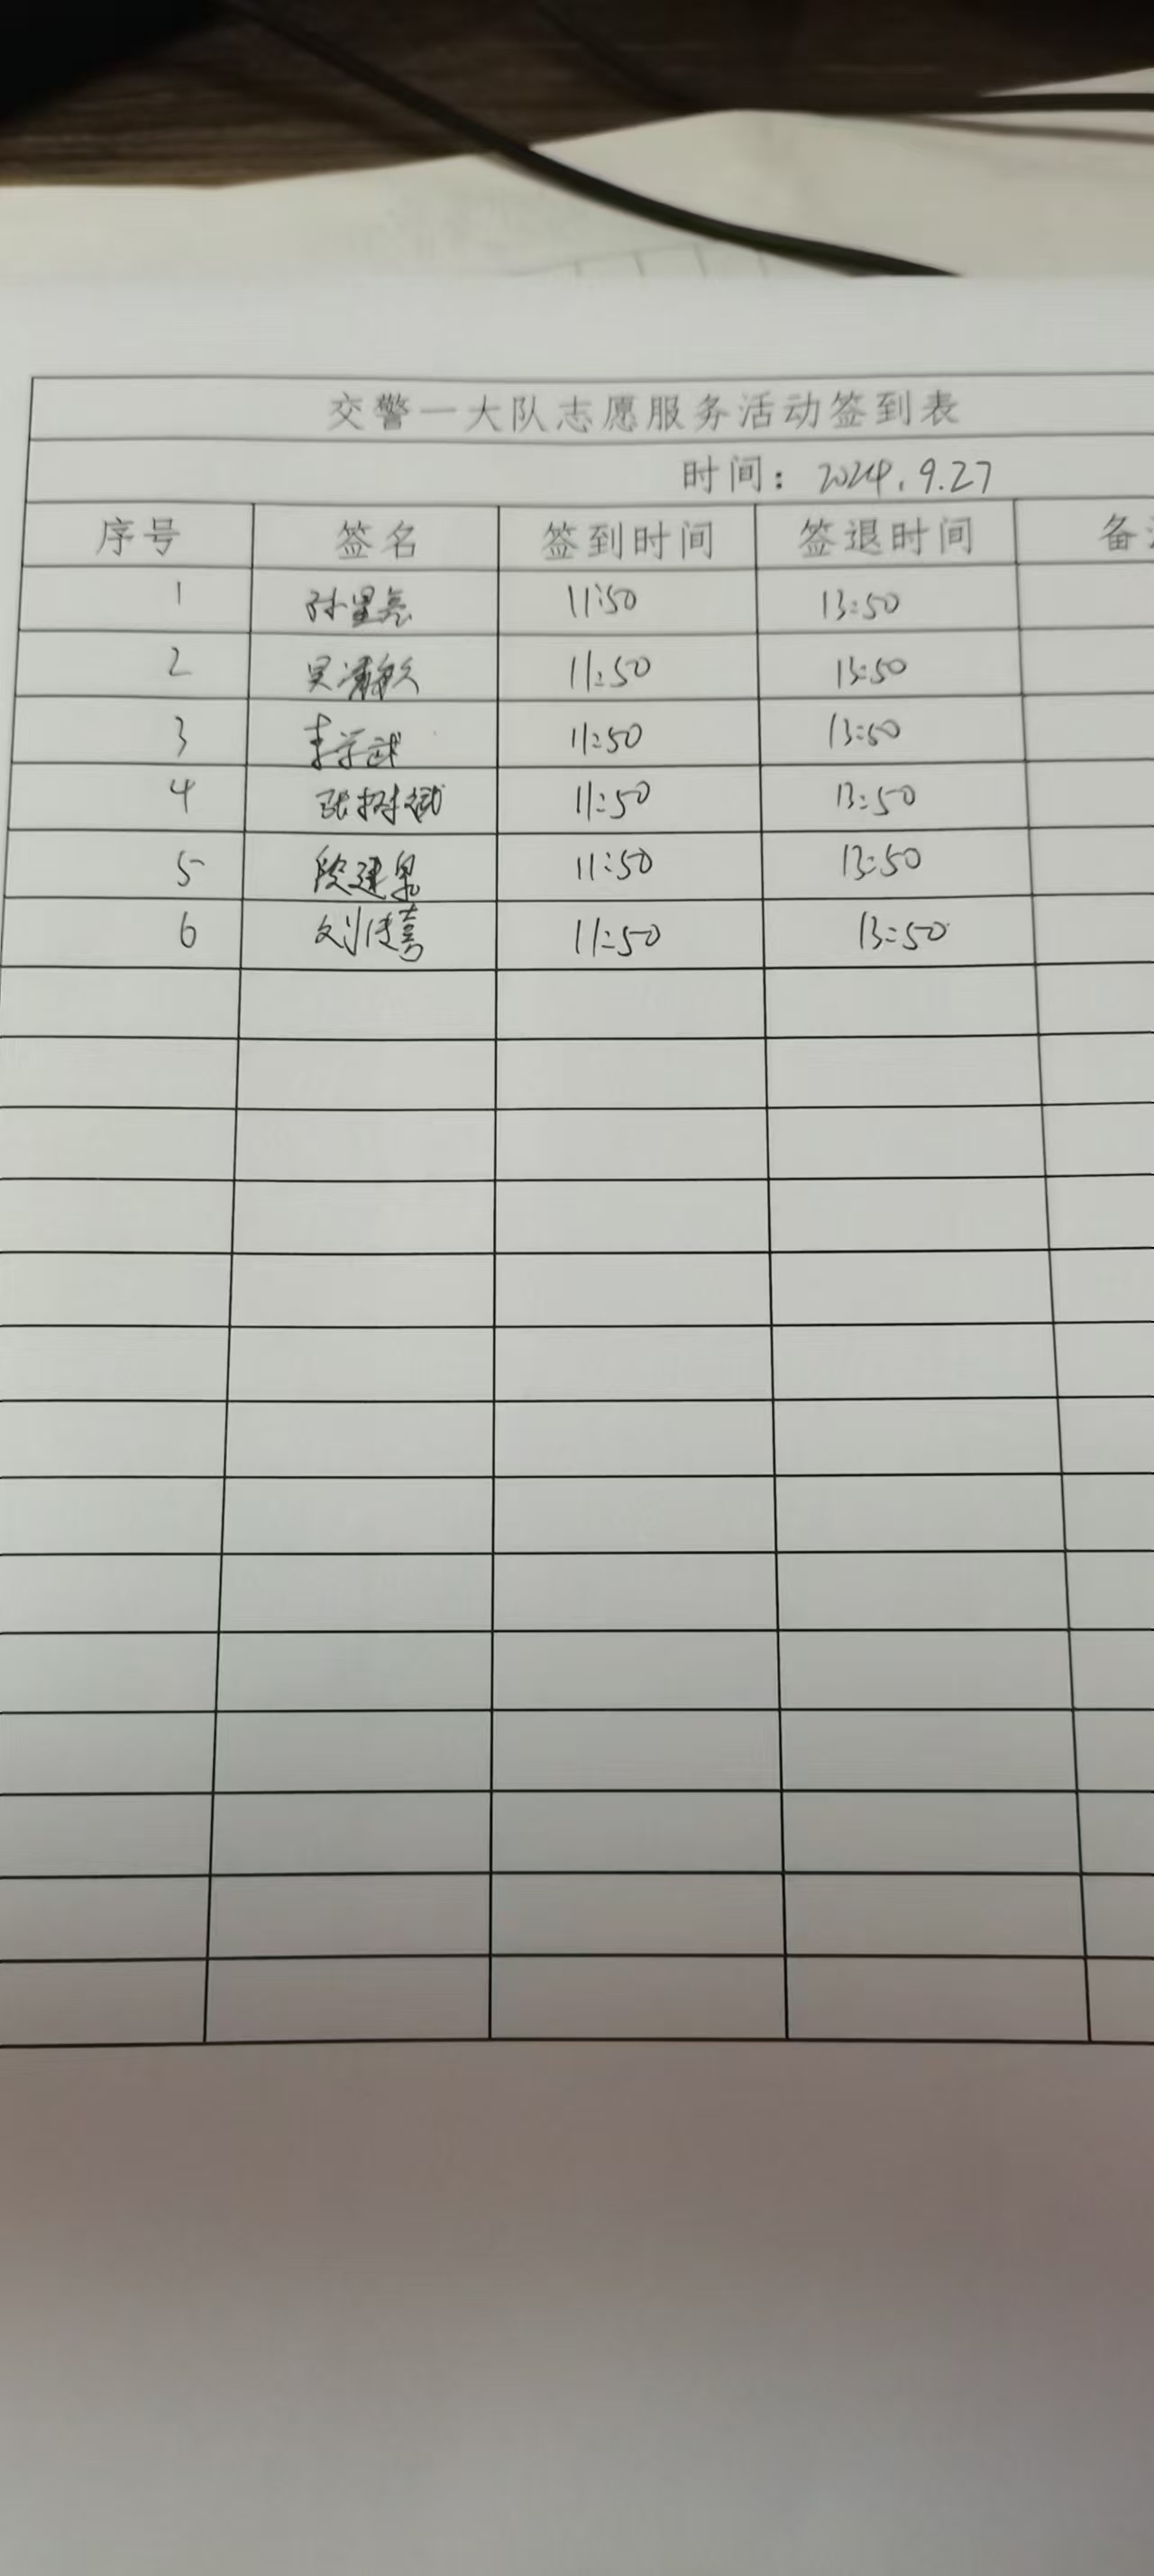 交警一大队志愿服务活动签到表
时间：2024.9.27
序号 签名 签到时间 签退时间 备
1 孙星亮 11:50 13:50
2 11:50 13:50
3 李学武 11:50 13:50
4 张树斌 11:50 13:50
5 段建泉 11:50 13:50
6 刘传喜 11:50 13:50